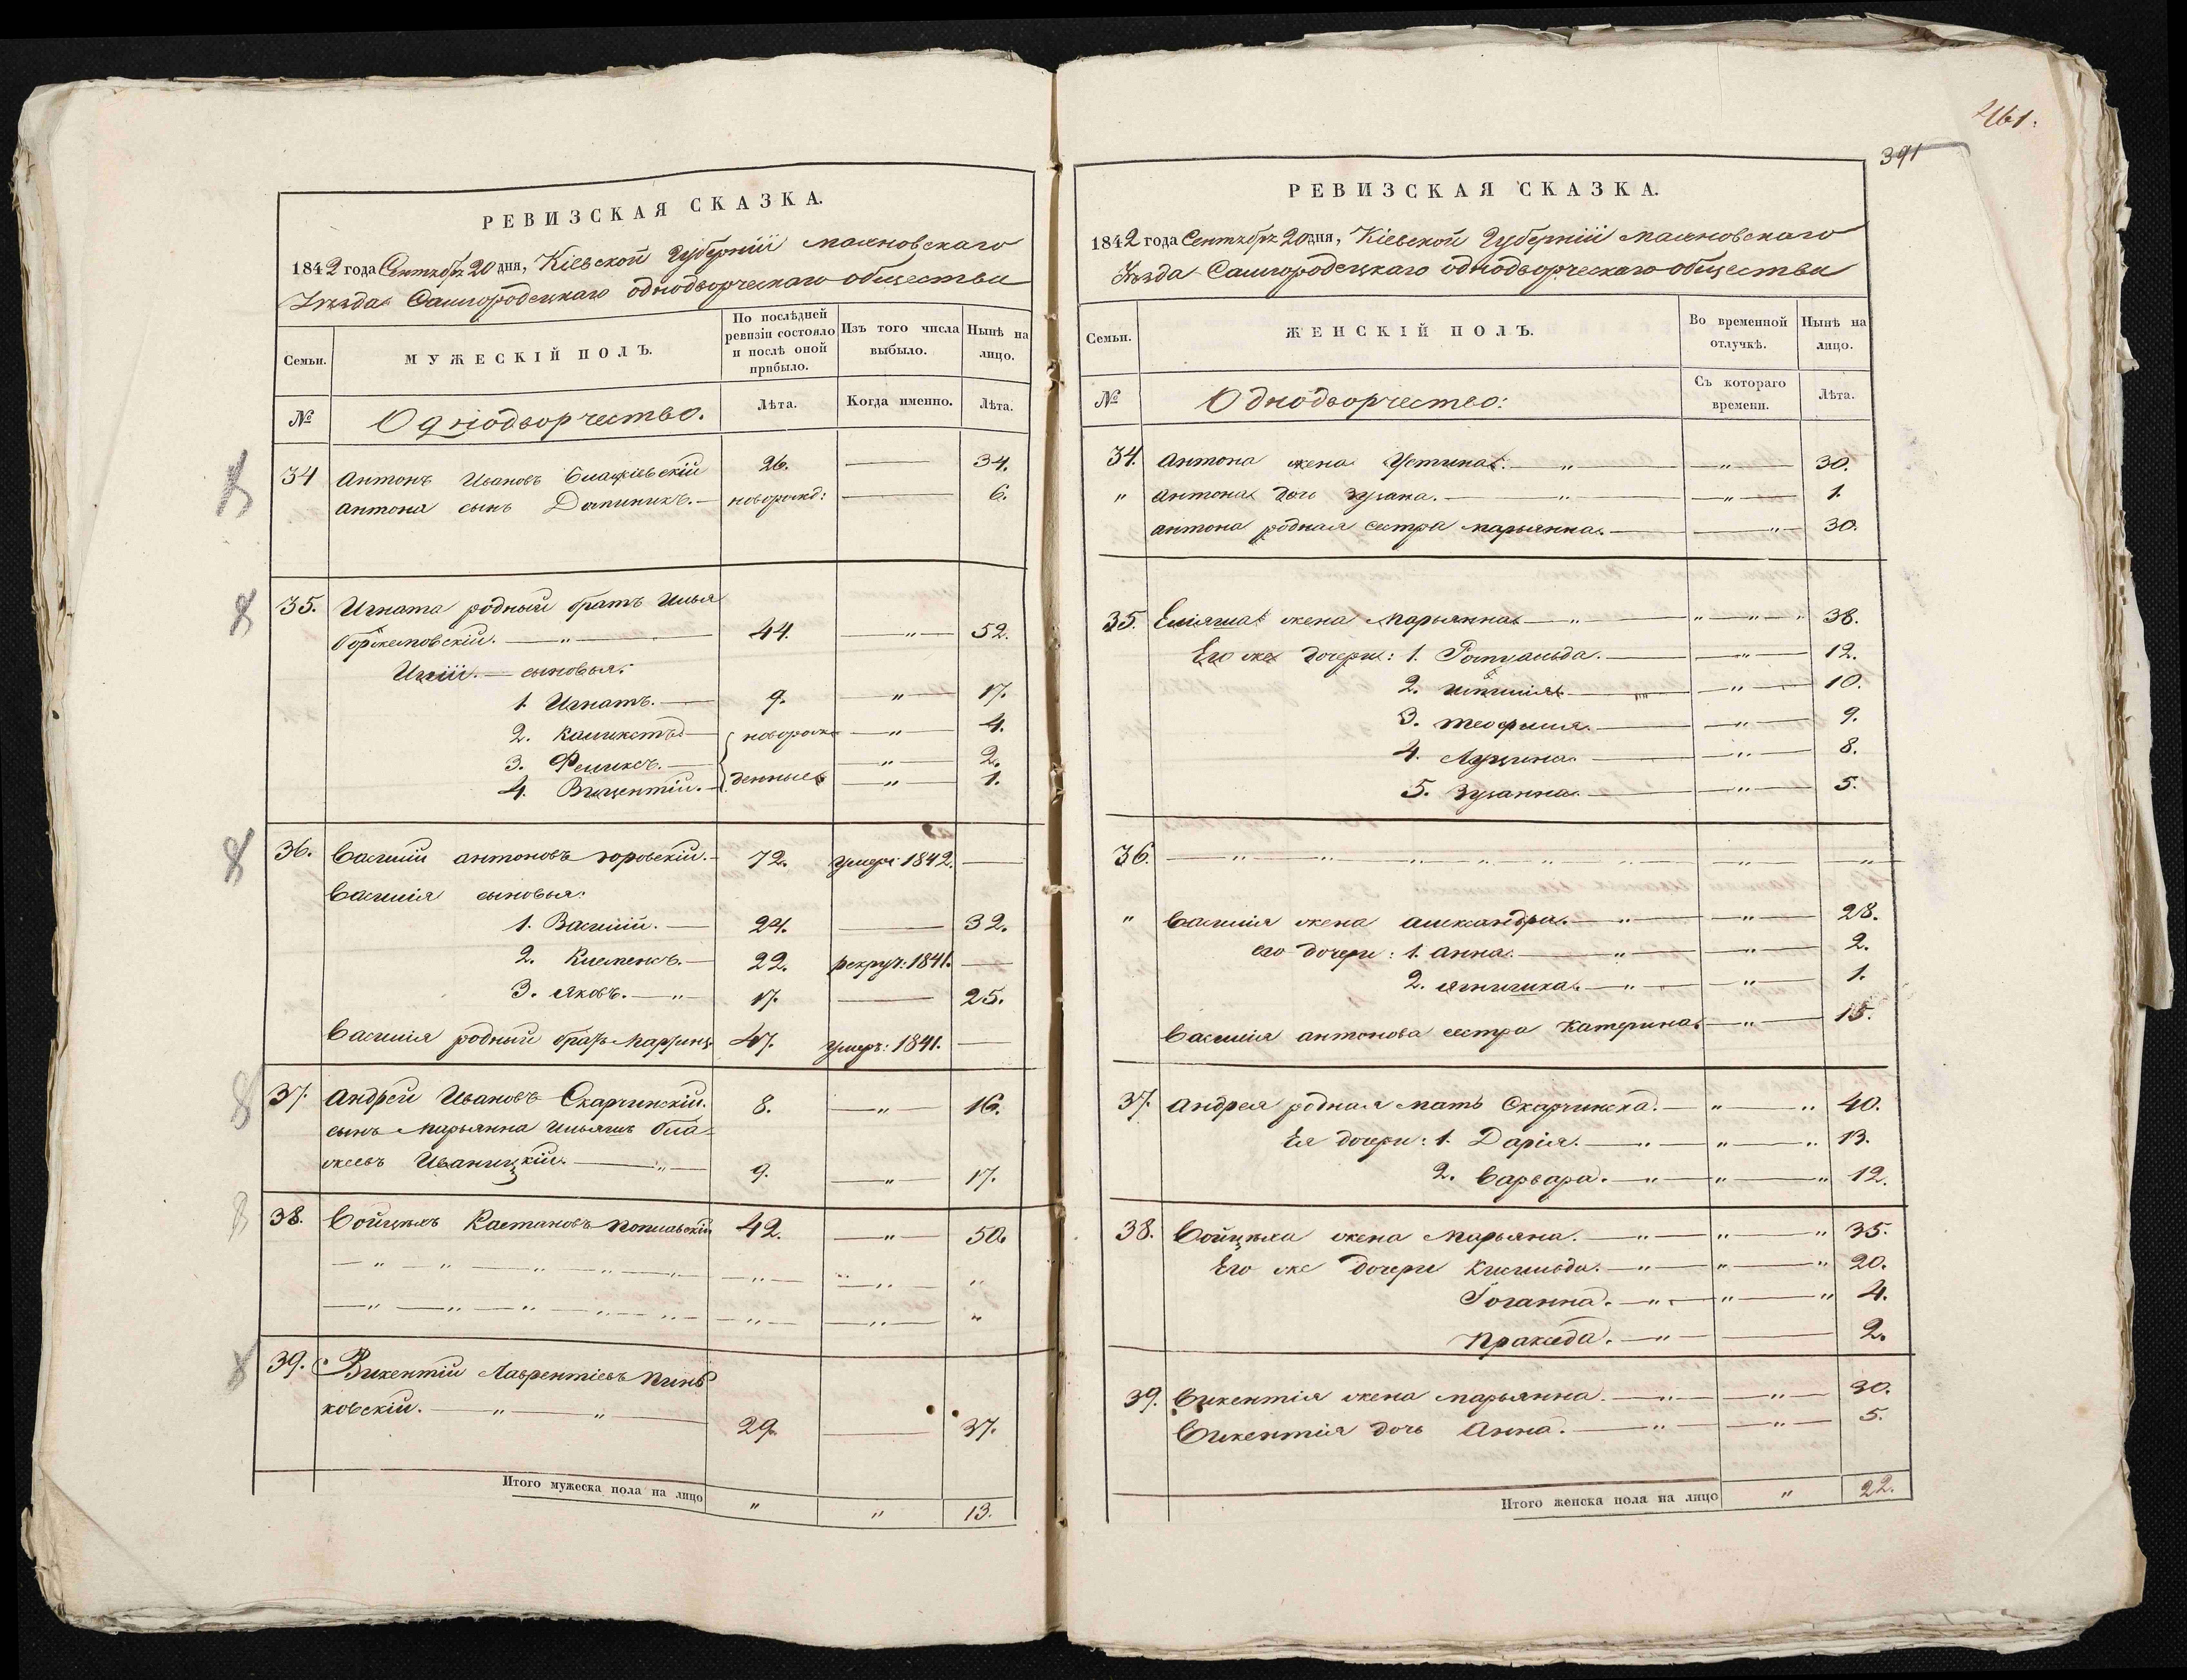 РЕВИЗСКАЯ СКАЗКА.
1842 года Сентября 20 дня, Кіевской Губерніи Махновскаго
Уѣзда Самгородецкаго однодворческаго общества
Семьи.
МУЖЕСКІЙ ПОЛЪ.
По послѣдней ревизіи состояло и послѣ оной прибыло.
Изъ того числа выбыло.
Нынѣ на лицо.
№
Однодворчество.
Лѣта.
Когда именно.
Лѣта.
34 Антонъ Ивановъ 26. 34.
Антона сынъ Доминикъ. новорожд: 6.
35. Игната родный братъ Илья
Боржемовскій. " 44. " 52.
сыновья:
1. Игнатъ. 9. " 17.
2. Каликстъ новорож " 4.
3. Феликсъ. " 2.
4. Вицентій. денные " 1.
36. Василій Антоновъ Юровскій. 72. умеръ 1842.
Василія сыновья:
1. Василій. 24. 32.
2. Клеменсъ. 22. рекрут: 1841.
3. Яковъ. " 17. 25.
Василія родный братъ Мартинъ 47. умеръ: 1841.
37. Андрей Ивановъ Скарчинскій. 8. " 16.
сынъ Марьянна Ильяшъ Бла-
жеевъ Иваницкій. " 9. " 17.
38. Войцѣхъ Каетановъ Поплавскій 42. " 50.
39. Викентій Лаврентіевъ Пинь
ковскій. " " 29. 37.
Итого мужеска пола на лицо " " 13.
461.
391
РЕВИЗСКАЯ СКАЗКА.
1842 года Сентября 20 дня, Кіевской Губерніи Махновскаго
Уѣзда Самгородецкаго однодворческаго общества
Семьи.
ЖЕНСКІЙ ПОЛЪ.
Во временной отлучкѣ.
Нынѣ на лицо.
№
Однодворчество:
Съ котораго времени.
Лѣта.
34. Антона жена Устина. " " 30.
" Антона дочь Зузана. " " 1.
Антона родная сестра Марьянна. " 30.
35. Еліяша жена Марьянна " " " " 38.
Его же дочери: 1. Ромуальда. " 12.
2. " " 10.
3. Теофилія. " 9.
4. Луцина. " 8.
5. Зузанна. " 5.
36. " " " " " " " "
" Василія жена Александра. " " 28.
его дочери: 1. Анна. " " 2.
2. Ягнишка. " " 1.
Василія Антонова сестра Катерина. " 15.
37. Андрея родная мать Скарчинска. " " 40.
Ея дочери: 1. Дарія. " " " 13.
2. Варвара. " " " 12.
38. Войцѣха жена Марьяна. " " " 35.
Его же дочери Клотильда. " " " 20.
Іоганна. " " " 4.
Пракседа. " 2.
39. Викентія жена Марьянна. " " 30.
Викентія дочь Анна. " " 5.
Итого женска пола на лицо " 22.